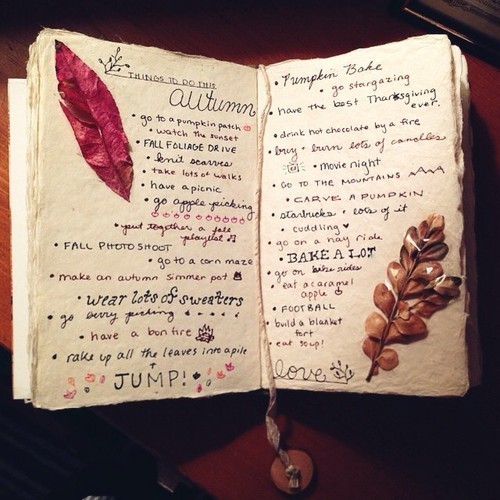 THINGS TO DO THIS
autumn
• go to a pumpkin patch
• watch the sunset
• FALL FOLIAGE DRIVE
• knit scarves
• take lots of walks
• have a picnic
• go apple picking
• put together a fall
playlist
• FALL PHOTO SHOOT
• go to a corn maze
• make an autumn simmer pot
• wear lots of sweaters
• go berry picking
• have a bonfire
• rake up all the leaves into a pile
+
JUMP!
• Pumpkin Bake
• go stargazing
• have the best Thanksgiving
ever.
• drink hot chocolate by a fire
• buy + burn lots of candles
• movie night
• GO TO THE MOUNTAINS
• CARVE A PUMPKIN
• starbucks + lots of it
• cuddling ♥
• go on a hay ride
• BAKE A LOT
• go on bike rides
• eat a caramel
apple
• FOOTBALL
• build a blanket
fort
• eat soup!
love